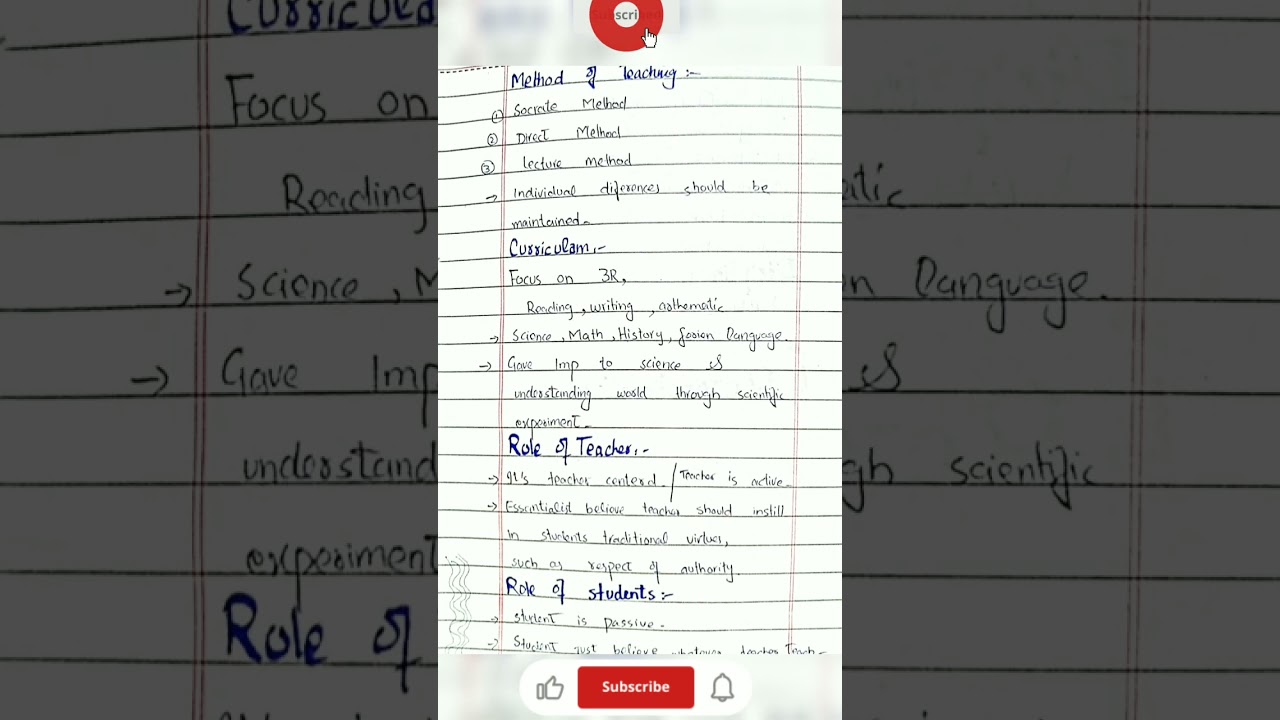 Subscri
Method of Teaching :-
① Socrate Method
② Direct Method
③ lecture method
→ Individual diferences should be
maintained.
Curriculam :-
Focus on 3R,
Reading, writing, asthematic
→ Science, Math, History, forien language.
→ Gave Imp to science &
understanding world through scientific
experiment.
Role of Teacher :-
→ It's teacher centerd. / Teacher is active.
→ Essentialist believe teacher should instill
in students traditional virtues,
such as respect of authority.
Role of students :-
→ student is passive.
→ Student just believe whatever teacher Teach
Subscribe
Curricula
Focus on
Reading
→ Science, M
→ Gave Imp
understand
experiment
Role of
atic
n language.
&
gh scientific